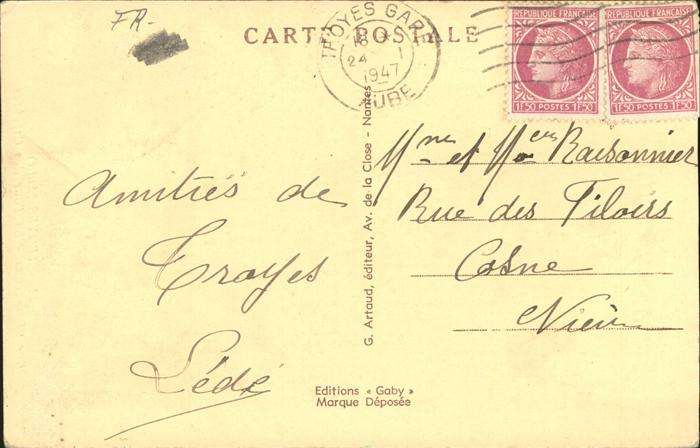 FR.
CARTE POSTALE
TROYES GARE
18
24 - 1
1947
AUBE
REPUBLIQUE FRANÇAISE
1F50 POSTES 1F50
REPUBLIQUE FRANÇAISE
1F50 POSTES 1F50
Amitiés de
Troyes
Lédé
G. Artaud, éditeur, Av. de la Close - Nantes
Mme et Mr Raisonnier
Rue des Filoirs
Cosne
Nièv
Editions « Gaby »
Marque Déposée